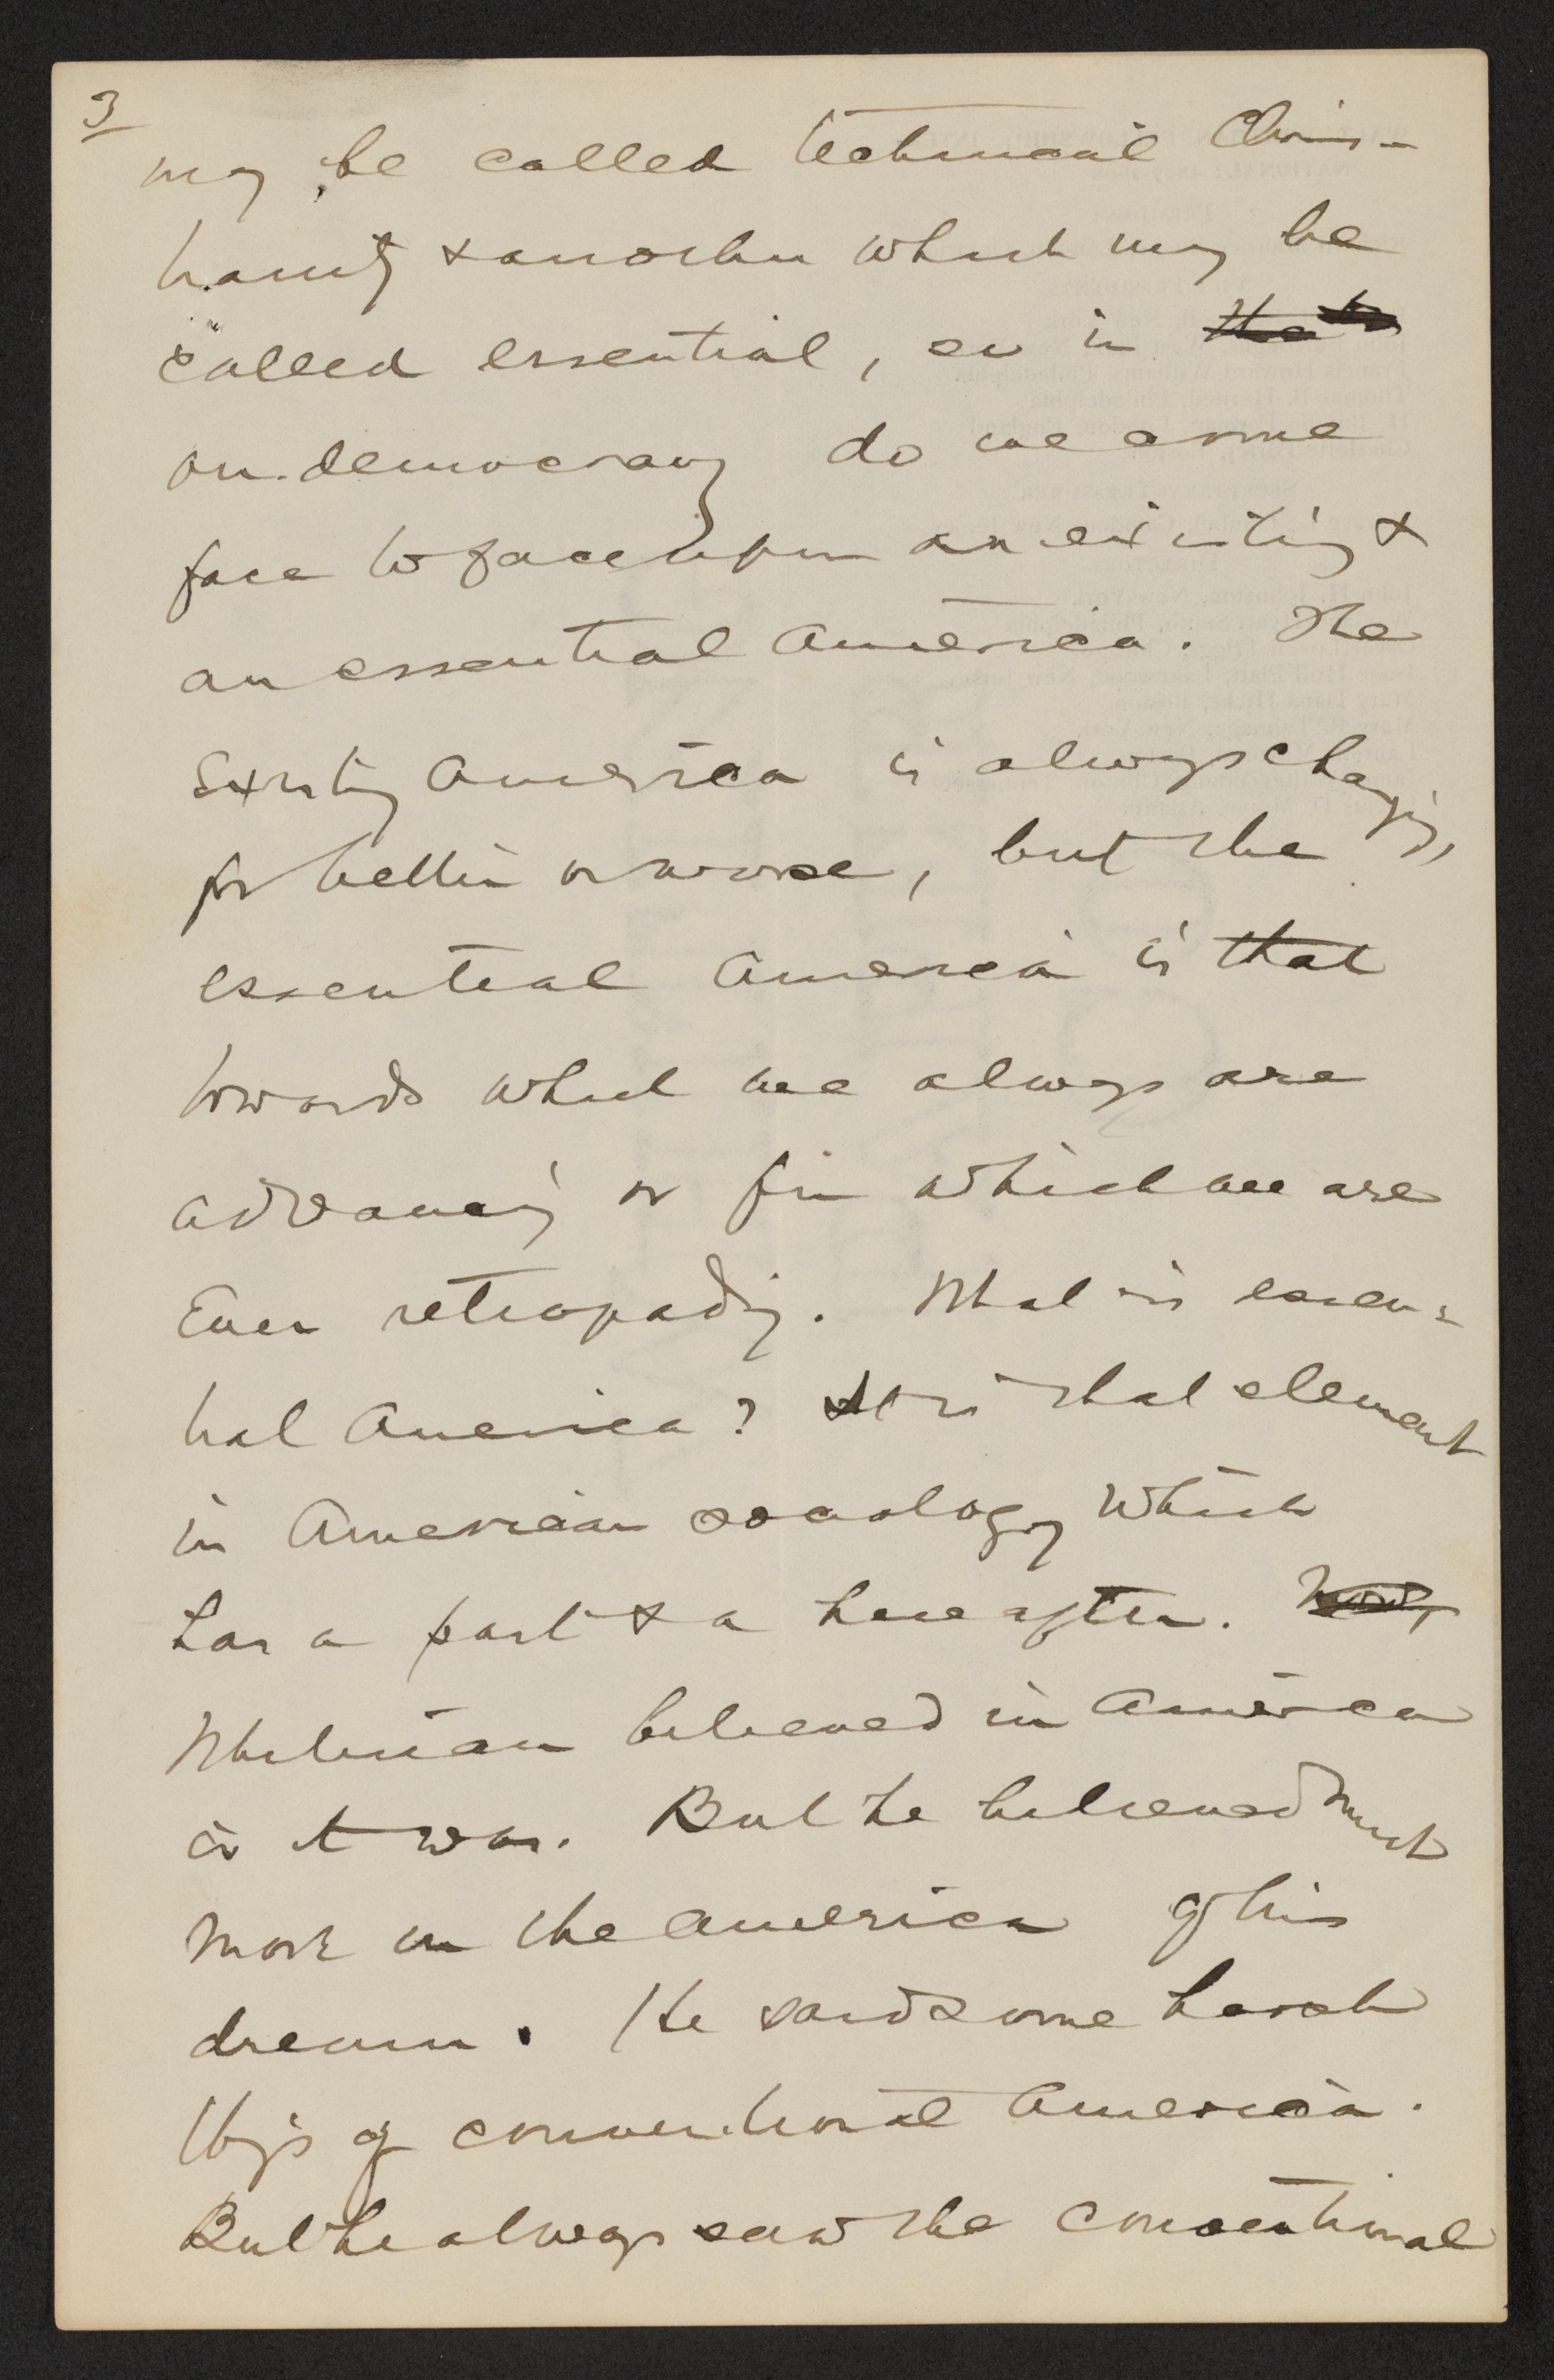 3
may be called technical Chris-
tianity & another which may be
called essential, so in
our democracy do we come
face to face upon an existing &
an essential America. The
Existing America is always changing,
for better or worse, but the
essential America is that
towards which we always are
advancing or from which we are
Ever retrograding. What is essen-
tial America? It is that element
in American sociology which
has a past & a hereafter.
Whitman believed in America
as it was. But he believed much
more in the America of his
dream. He said some harsh
things of conventional America.
But he always saw the conventional